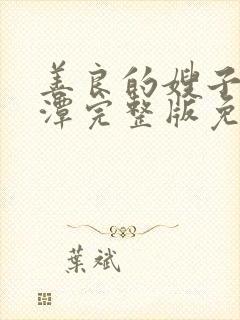 善良的嫂子
潭完整版免
葉斌